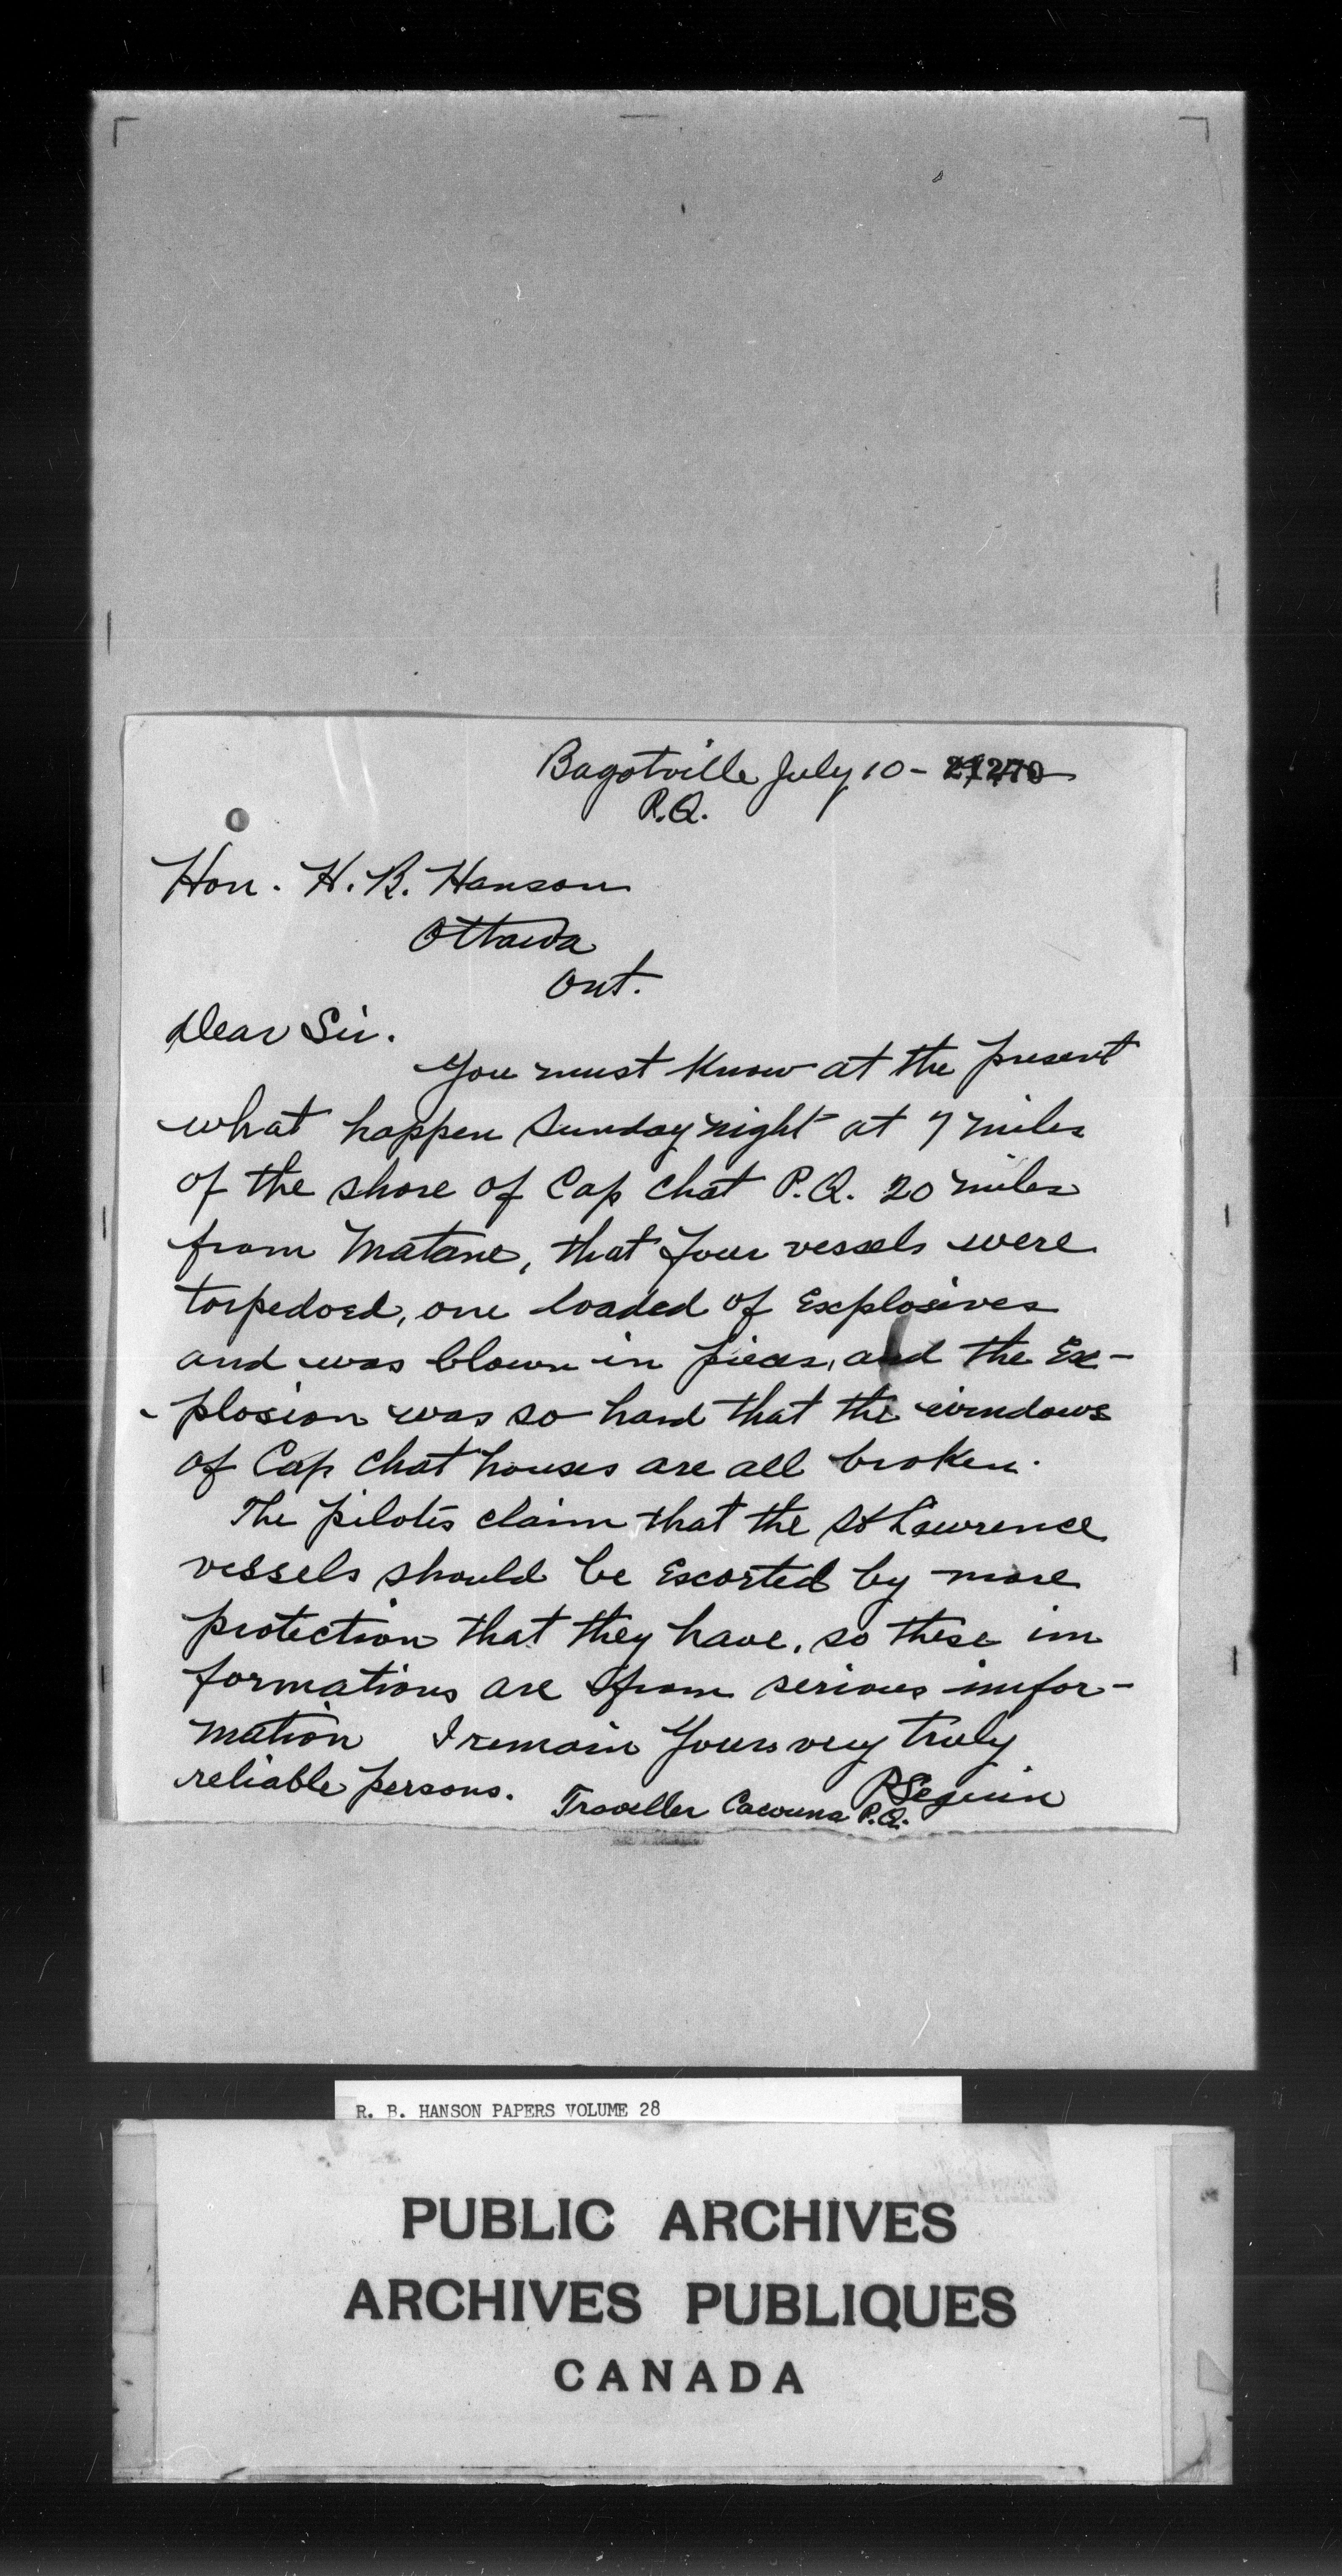 Bagotville July 10 - 21270
P.Q.
Hon. H. B. Hanson
Ottawa
Ont.
Dear Sir.
You must Know at the present
what happen Sunday night at 7 miles
of the shore of Cap chat P.Q. 20 miles
from Matane, that four vessels were
torpedoed, one loaded of Explosives
and was blown in pieces, and the Ex-
-plosion was so hard that the windows
of Cap chat houses are all broken.
The pilots claim that the St Lawrence
vessels should be Escorted by more
protection that they have, so these in
formations are from serious infor-
mation I remain Yours very truly
reliable persons. RSeguin
Traveller Cacouna P.Q.
R. B. HANSON PAPERS VOLUME 28
PUBLIC ARCHIVES
ARCHIVES PUBLIQUES
CANADA